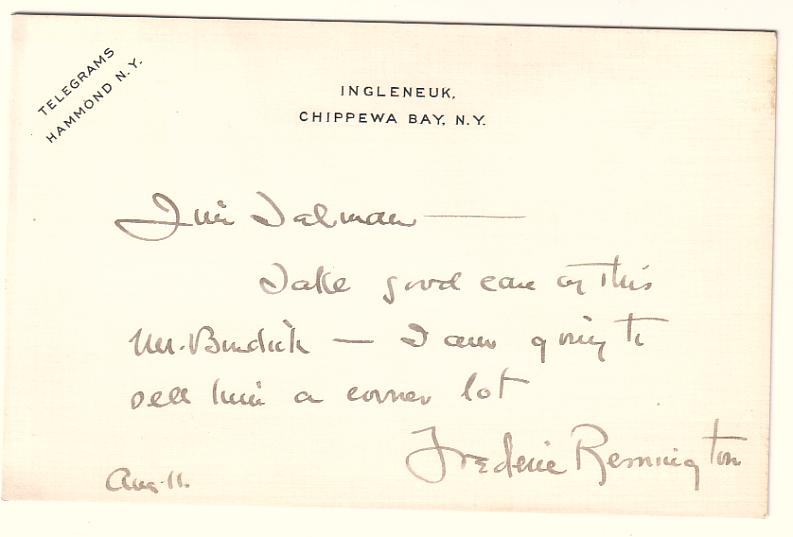 TELEGRAMS
HAMMOND N.Y.
INGLENEUK,
CHIPPEWA BAY, N.Y.
Jim Talman —
Take good care of this
Mr. Burdick — I am going to
sell him a corner lot
Frederic Remington
Aug. 11.